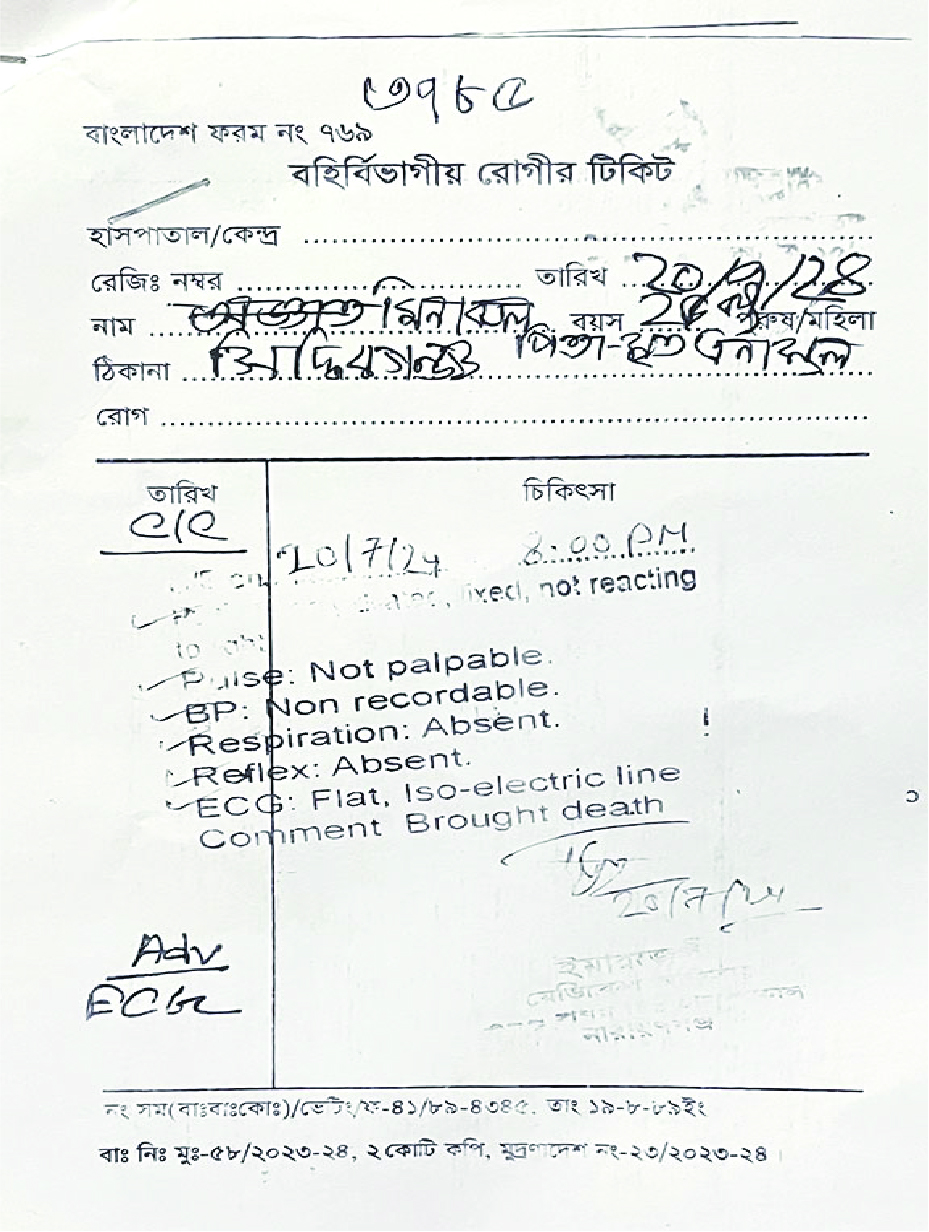 ৩৭৮৫
বাংলাদেশ ফরম নং ৭৬৯
বহির্বিভাগীয় রোগীর টিকিট
হাসপাতাল/কেন্দ্র
রেজিঃ নম্বর তারিখ 20/7/24
নাম বয়স পুরুষ/মহিলা
ঠিকানা সিদ্ধিরগঞ্জ পিতা-মৃত
রোগ
তারিখ চিকিৎসা
C/C
20/7/24 8:00 PM
fixed, not reacting
to
Pulse: Not palpable.
BP: Non recordable.
Respiration: Absent.
Reflex: Absent.
ECG: Flat, Iso-electric line
Comment Brought death
20/7/24
Adv
ECG
নারায়ণগঞ্জ
নং সম(বাঃবাঃকোঃ)/ভেটিং/ফ-৪১/৮৯-৪৩৪৫. তাং ১৯-৮-৮৯ইং
বাঃ নিঃ মুঃ-৫৮/২০২৩-২৪, ২ কোটি কপি, মুদ্রণাদেশ নং-২৩/২০২৩-২৪।